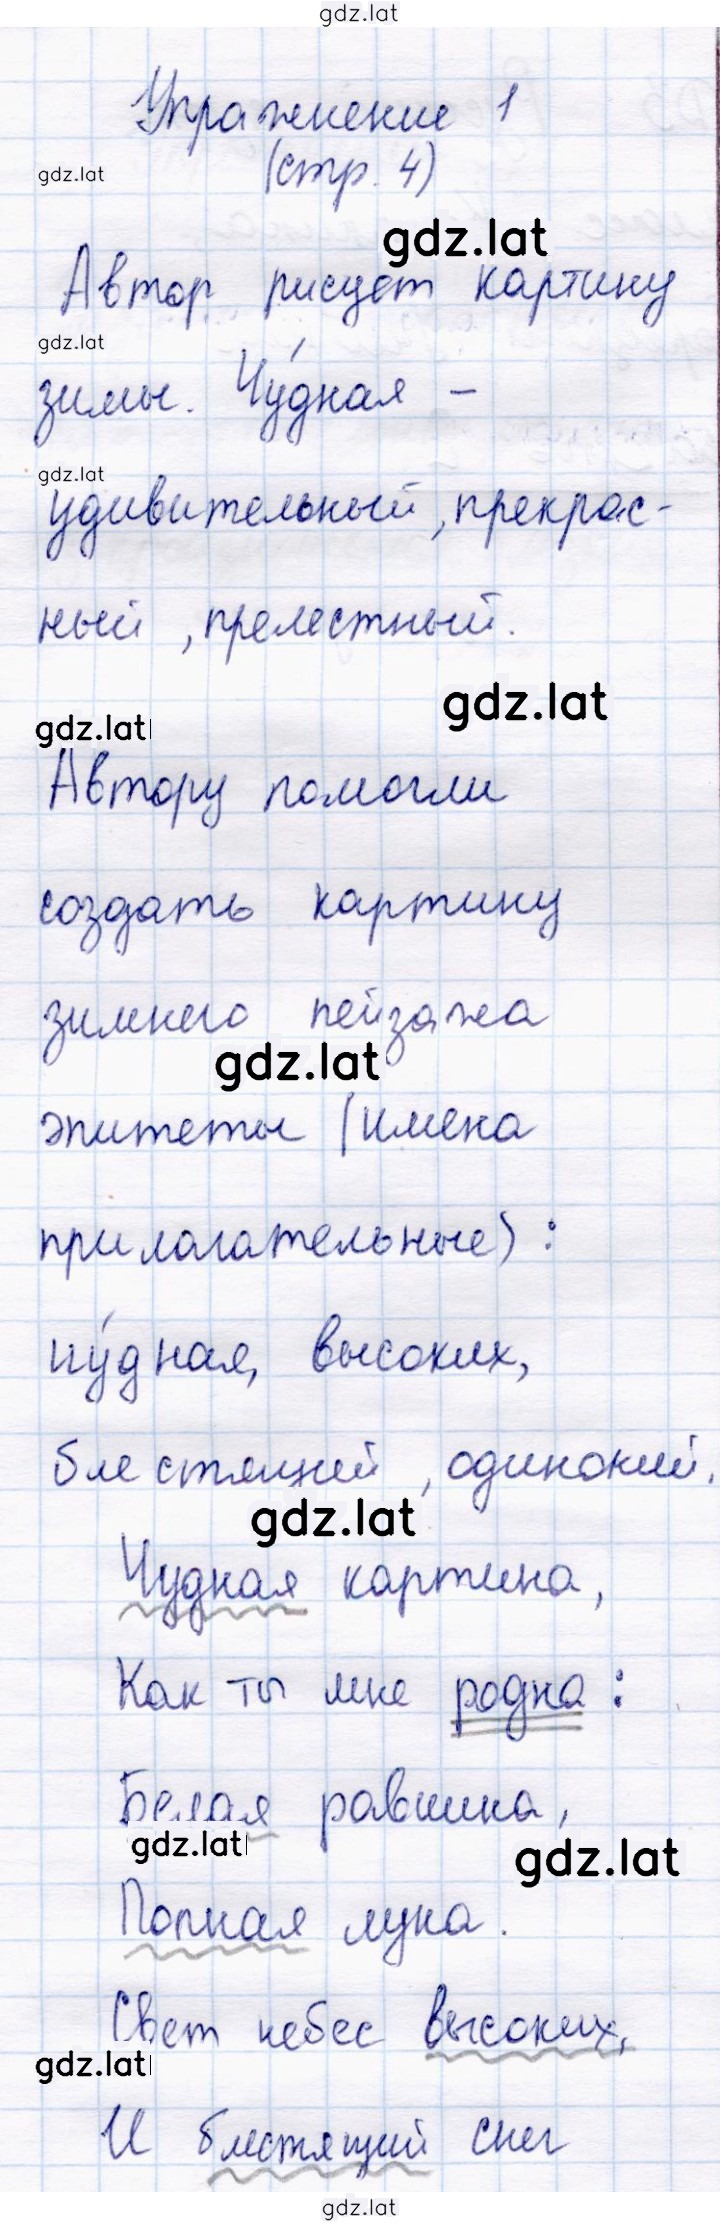 gdz.lat
Упражнение 1
gdz.lat
(стр. 4)
gdz.lat
Автор рисует картину
gdz.lat
зимы. Чу́дная –
gdz.lat
удивительный, прекрас-
ный, прелестный.
gdz.lat
gdz.lat
Автору помогли
создать картину
зимнего пейзажа
gdz.lat
эпитеты (имена
прилагательные):
чу́дная, высоких,
блестящий, одинокий.
gdz.lat
Чудная картина,
Как ты мне родна:
Белая равнина,
gdz.lat
gdz.lat
Полная луна.
Свет небес высоких,
gdz.lat
И блестящий снег
gdz.lat